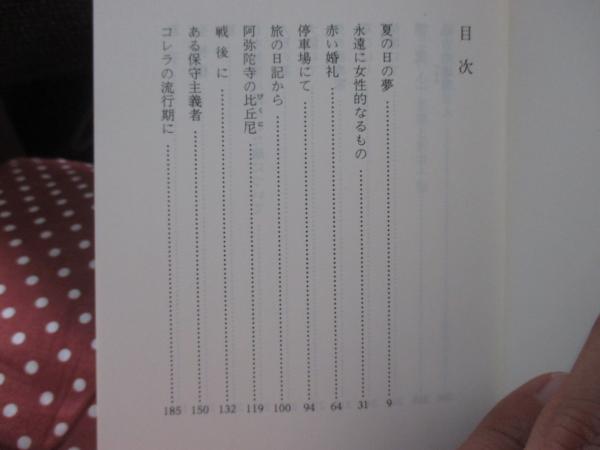 目次
夏の日の夢 9
永遠に女性的なるもの 31
赤い婚礼 64
停車場にて 94
旅の日記から 100
阿弥陀寺の比丘尼 119
びくに
戦後に 132
ある保守主義者 150
コレラの流行期に 185